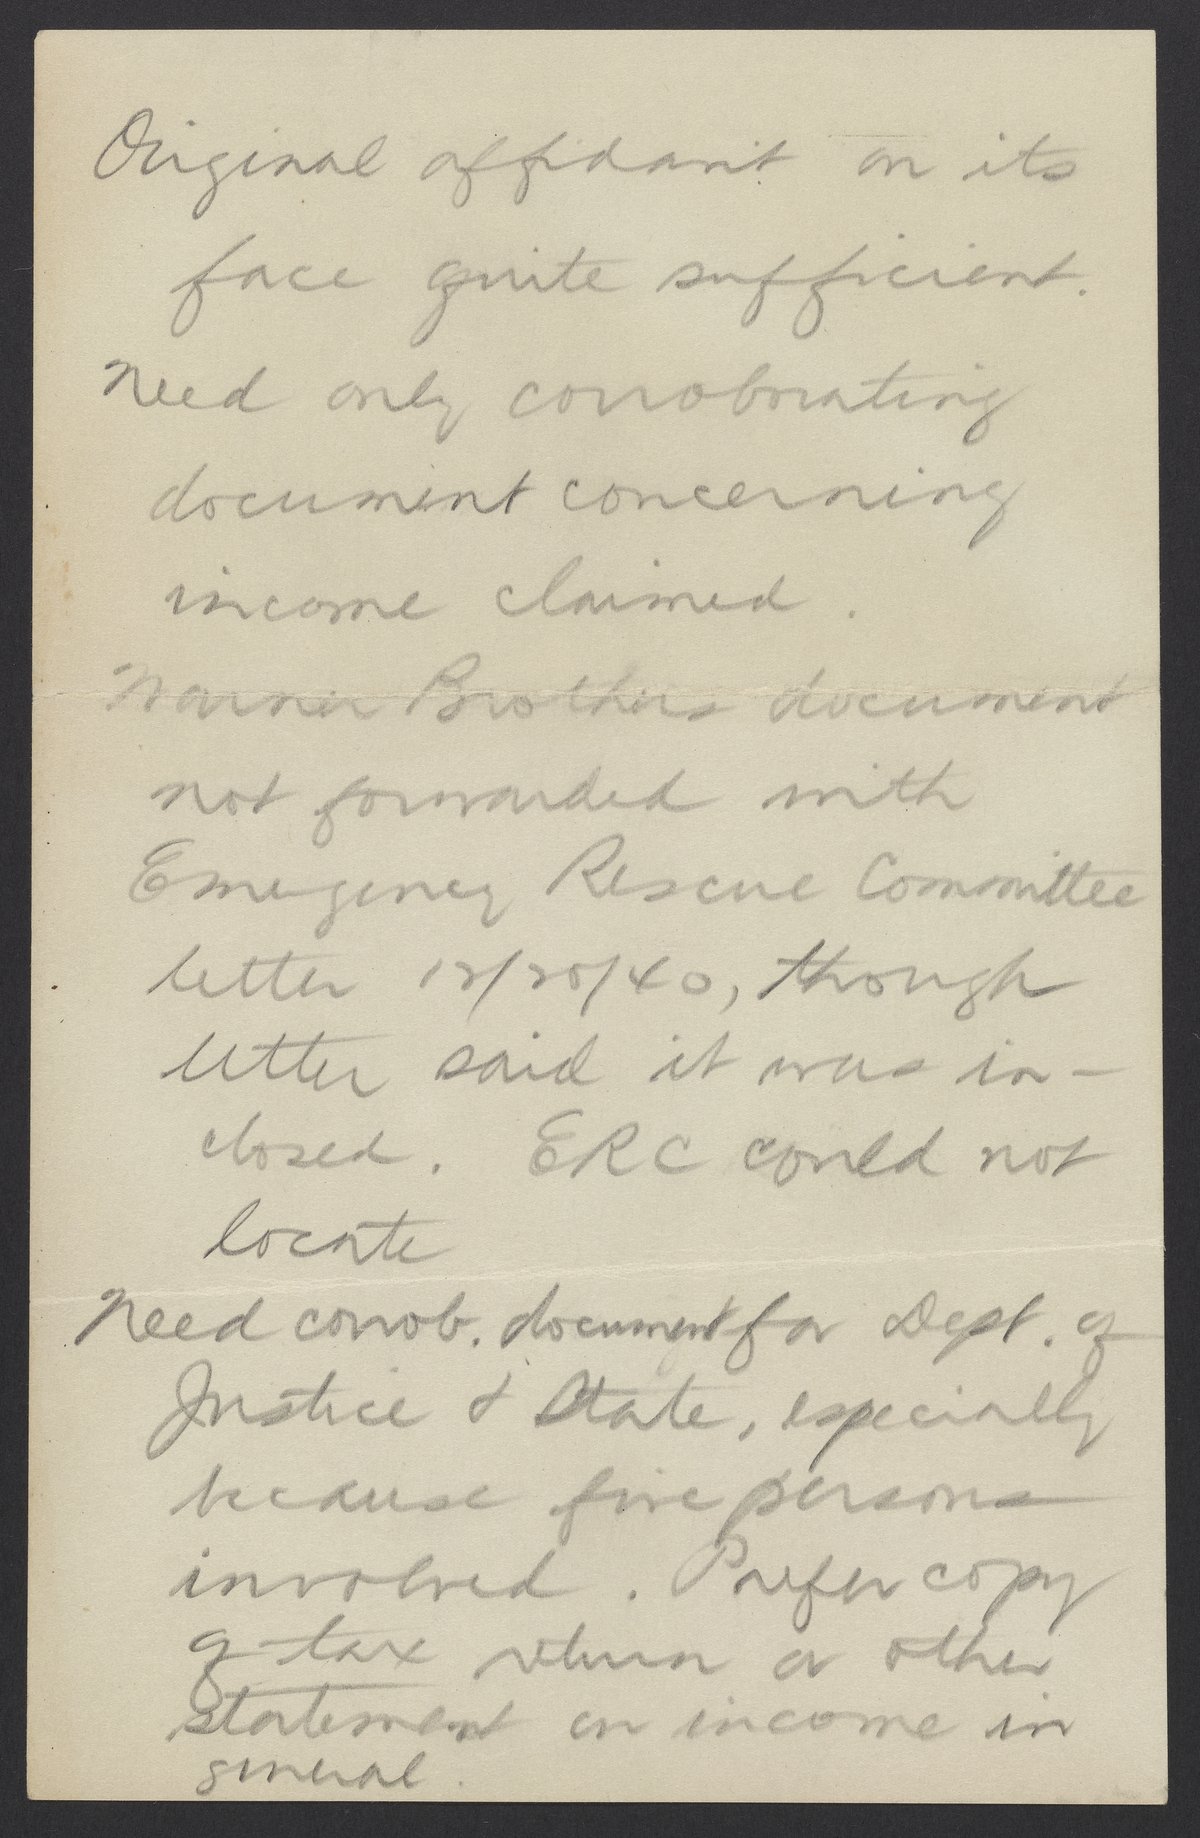 Original affidavit on its
face quite sufficient.
Need only corroborating
document concerning
income claimed.
Warner Brothers document
not forwarded with
Emergency Rescue Committee
letter 12/20/40, though
letter said it was in-
closed. ERC could not
locate
Need corrob. document for Dept. of
Justice & State, especially
because five persons
involved. Prefer copy
of tax return or other
statement on income in
general.